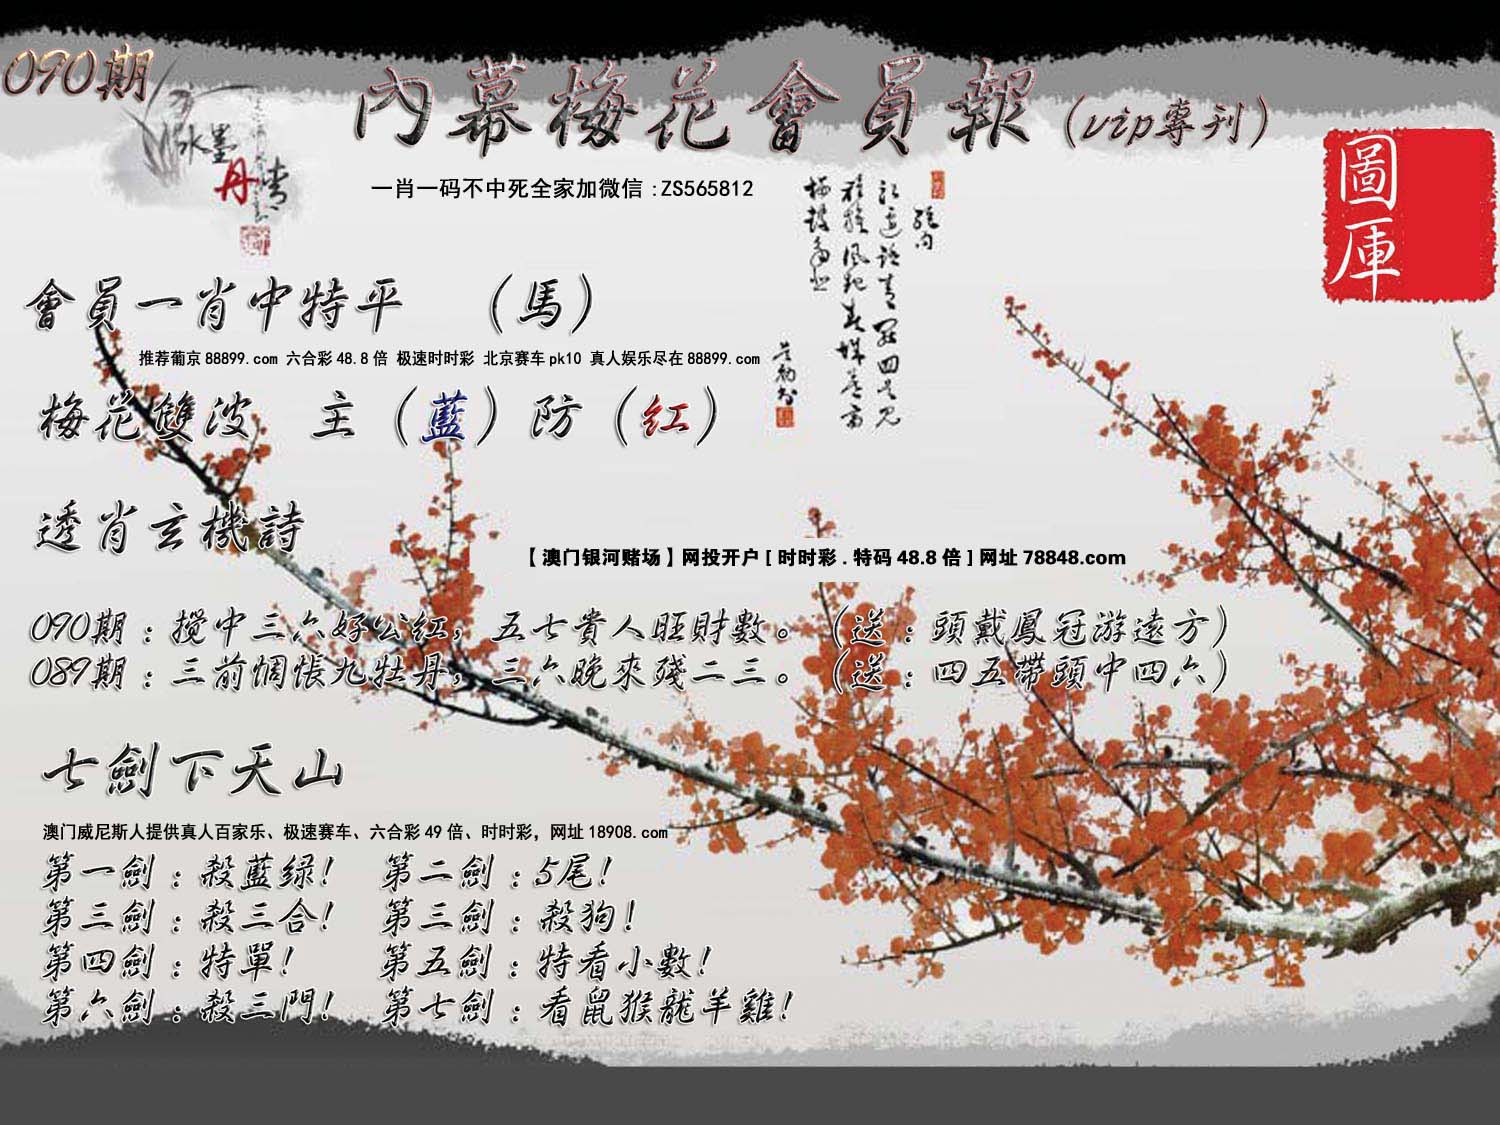 090期
內幕梅花會員報(vip專刊)
水墨
丹青
一肖一码不中死全家加微信:ZS565812
圖庫
會員一肖中特平 (馬)
推荐葡京88899.com 六合彩48.8倍 极速时时彩 北京赛车pk10 真人娱乐尽在88899.com
梅花雙波 主(藍)防(红)
透肖玄機詩
【澳门银河赌场】网投开户[时时彩.特码48.8倍]网址78848.com
090期:攪中三六好公紅,五七貴人旺財數。(送:頭戴鳳冠游遠方)
089期:三前惆悵九牡丹,三六晚來殘二三。(送:四五帶頭中四六)
七劍下天山
澳门威尼斯人提供真人百家乐、极速赛车、六合彩49倍、时时彩，网址18908.com
第一劍:殺藍绿! 第二劍:5尾!
第三劍:殺三合! 第三劍:殺狗!
第四劍:特單! 第五劍:特看小數!
第六劍:殺三門! 第七劍:看鼠猴龍羊雞!